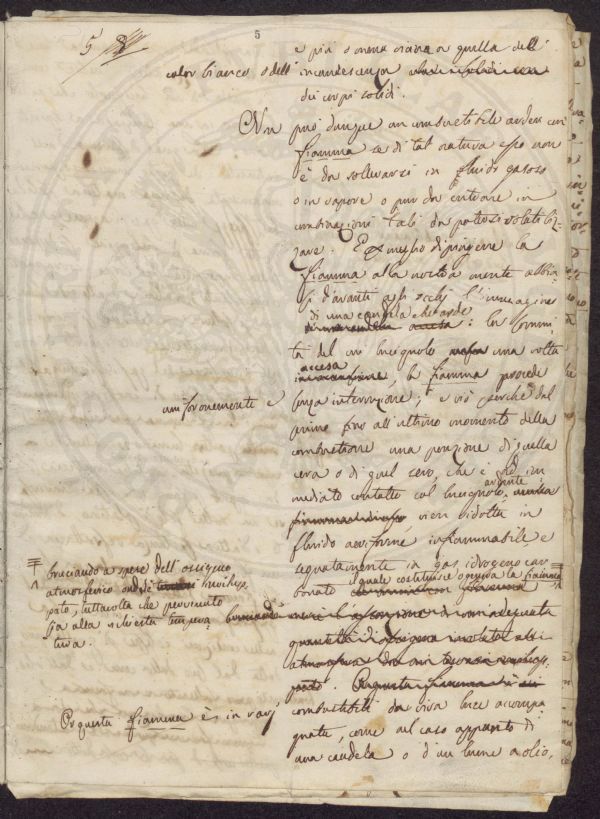 5
5
e più o meno vicina a quella dell'
calor bianco o dell' incandescenza
dei corpi solidi.
Non può dunque un combustibile ardere con
fiamma se di tal natura esso non
è da sollevarsi in fluido gasoso
o in vapore o pur da entrare in
combinazioni tali da potersi volatiliz-
zare. E a meglio dipingere la
fiamma alla nostra mente abbia-
si d'avanti agli occhi l'immagine
di una candela che arde: la sommi-
tà del cui lucignolo una volta
accesa, la fiamma procede
uniformemente e senza interruzione; e ciò perchè dal
primo fino all'ultimo momento della
combustione una porzione di quella
cera o di quel sevo, che è ad im-
mediato contatto col lucignolo ardente
vien ridotta in
fluido aeriforme infiammabile, e
segnatamente in gas idrogeno car-
bonato il quale costituisce appunto la fiamma
bruciando a spese dell'ossigeno
atmosferico ond'è invilup-
pato, tuttavolta che pervenuto
sia alla richiesta tempera-
tura.
Or questa fiamma è in varj
combustibili da viva luce accompa-
gnata, come nel caso appunto di
una candela o d'un lume a olio,